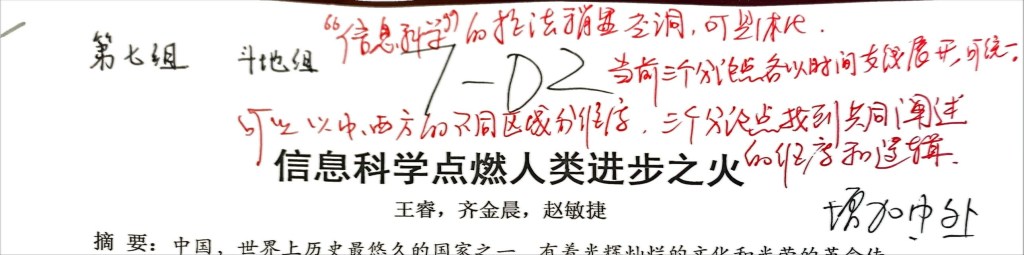 “信息科学”的提法稍显空洞，可具体化．
第七组 斗地组 7-D2
当前三个分论点各以时间支线展开，可统一。
可以以中、西方的不同区域分维序．三个分论点找到共同阐述
的维序和逻辑．
信息科学点燃人类进步之火
王睿，齐金晨，赵敏捷
增加中处
摘 要：中国，世界上历史最悠久的国家之一，有着光辉灿烂的文化和光荣的革命传